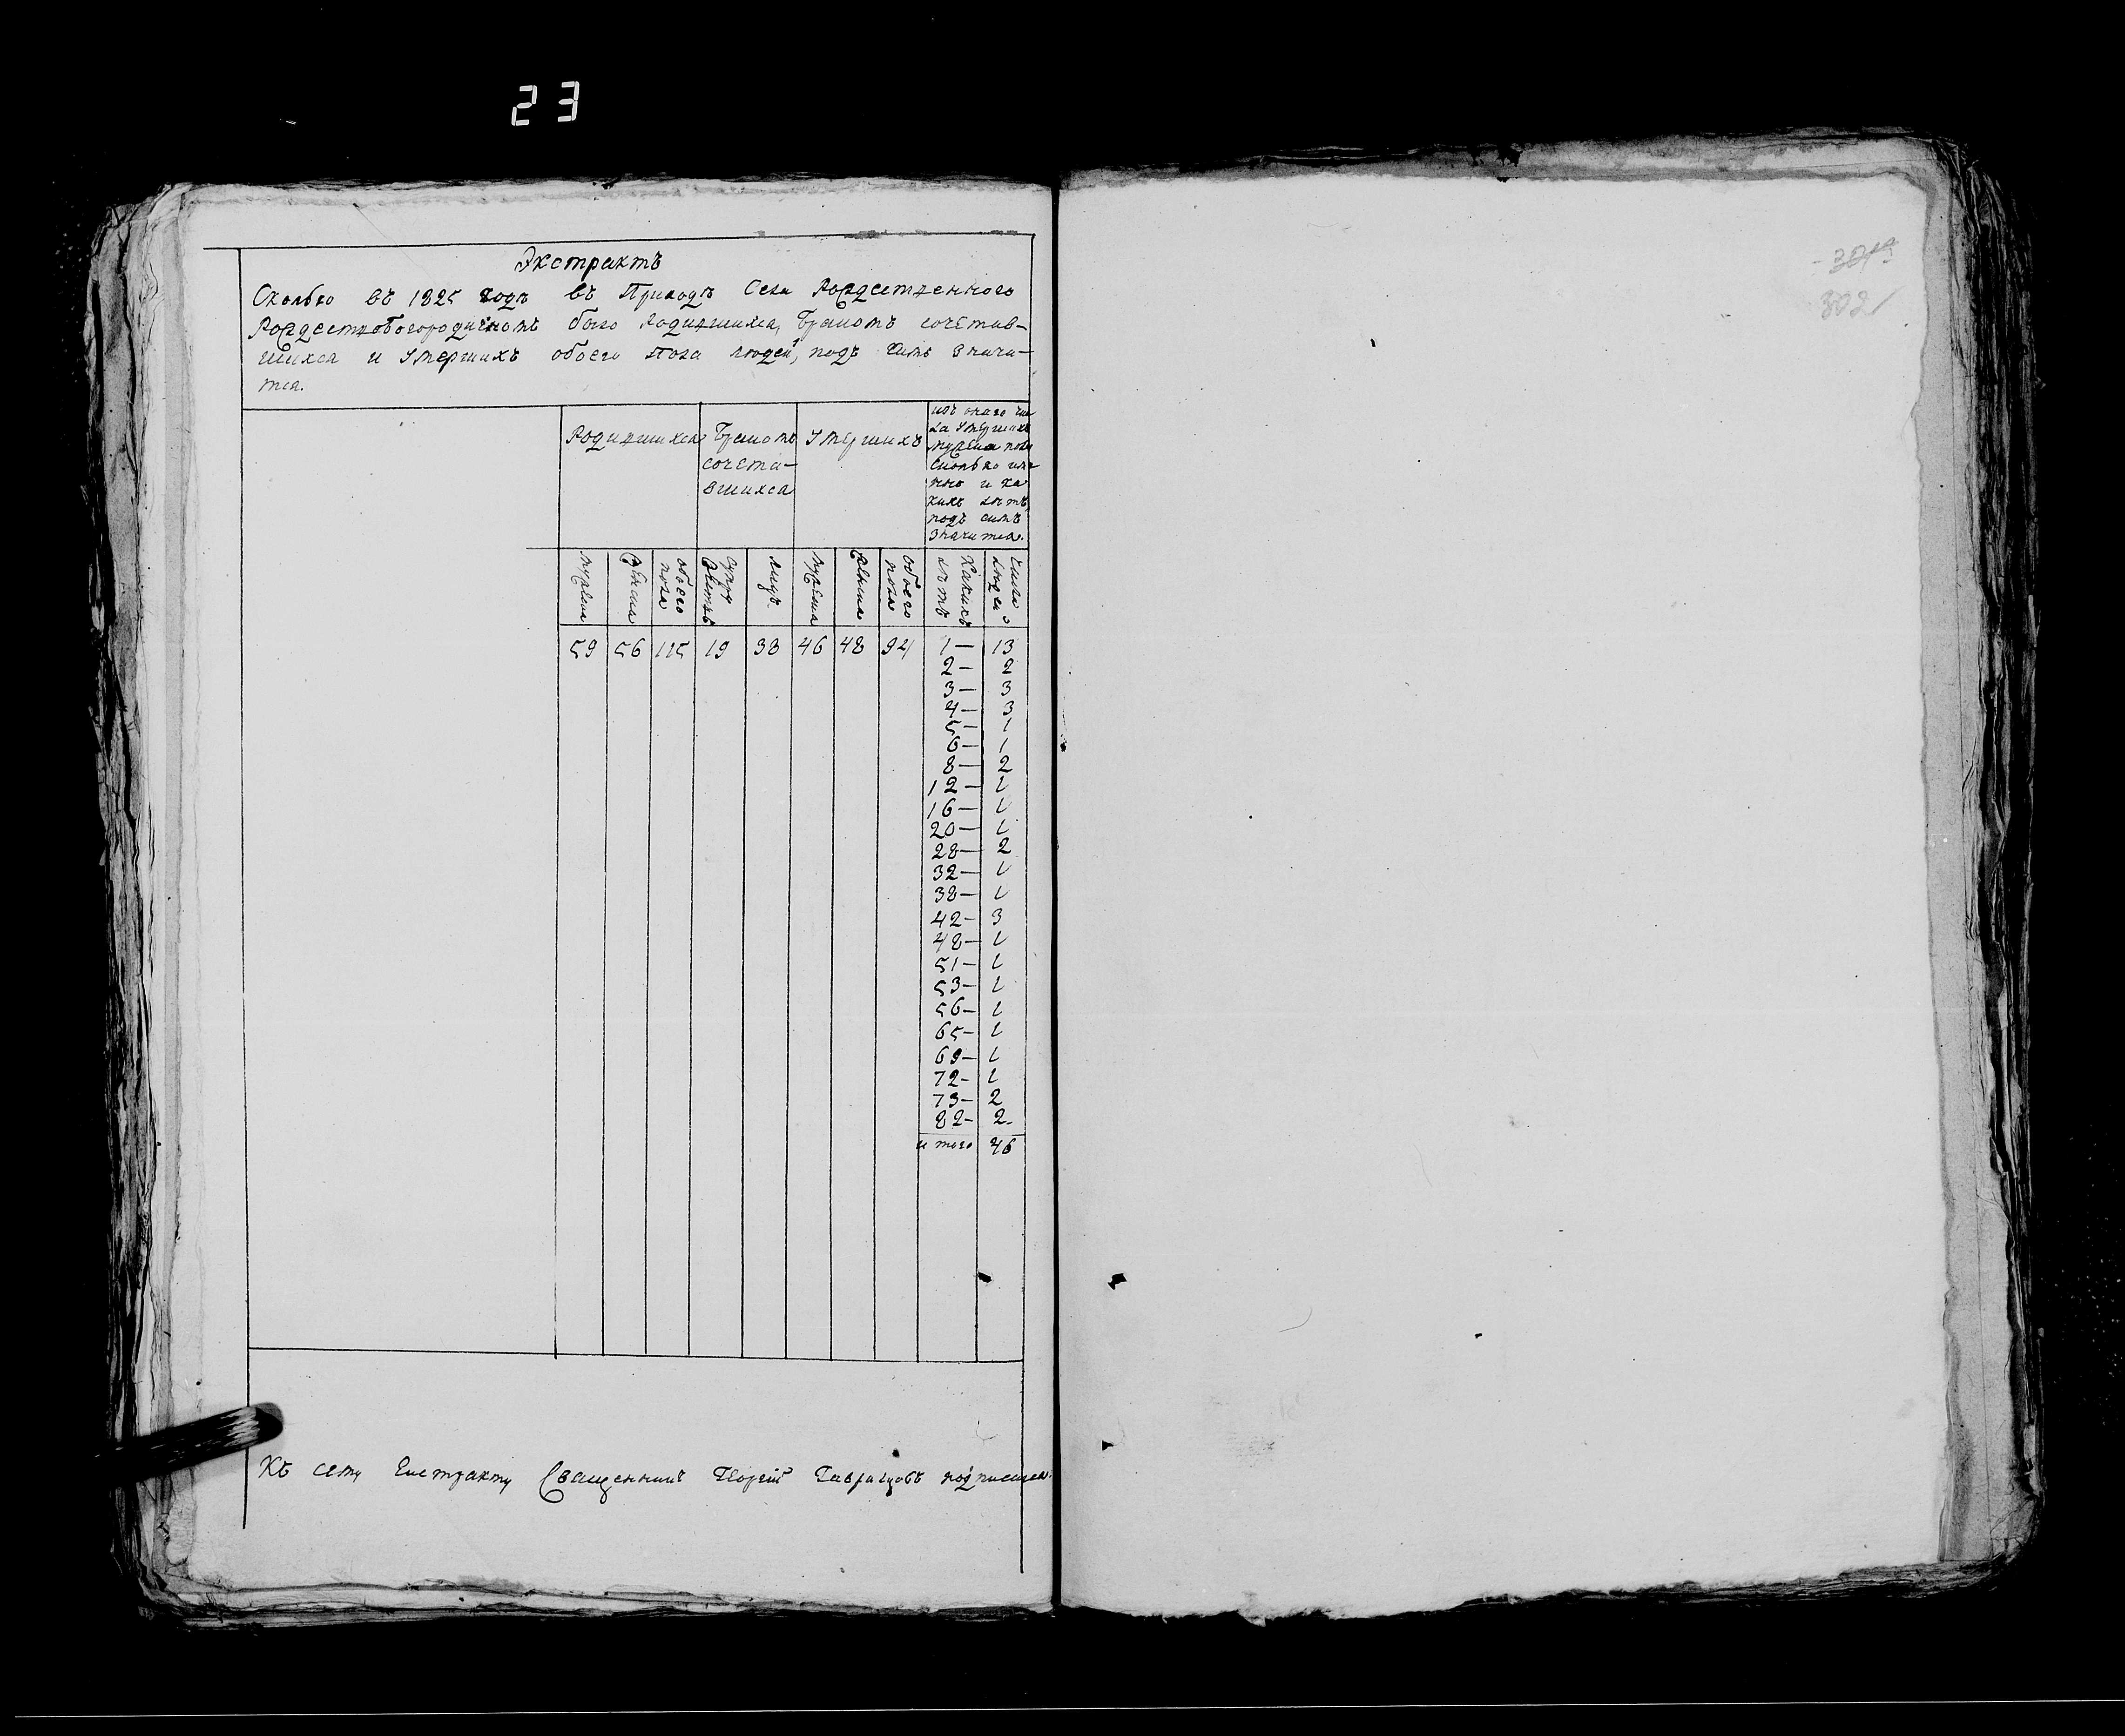 23
Экстрактъ
Сколько въ 1825 годѣ въ Приходѣ Села Рождественного
Рождествобогородичномъ было Родившихся, Бракомъ сочетав-
шихся и Умершихъ обоего пола людей, подъ симъ значи-
тся.
Родившихся
Бракомъ
сочета-
вшихся
Умершихъ
изъ онаго чи
ла Умершихъ
мужеска пола
сколько име
нно и ка
кихъ лѣтъ,
подъ симъ
значится.
мужеска
женска
обоего
пола
супру
жествъ
лицъ
мужеска
женска
обоего
пола
Какихъ
лѣтъ
число
людей
59 56 115 19 38 46 48 94 1— 13
2— 2
3— 3
4— 3
5— 1
6— 1
8— 2
12— 1
16— 1
20— 1
28— 2
32— 1
38— 1
42— 3
48— 1
51— 1
53— 1
56— 1
65— 1
69— 1
72— 1
73— 2
82— 2
итого 46
Къ сему Екстракту Священникъ Георгій подписался.
302